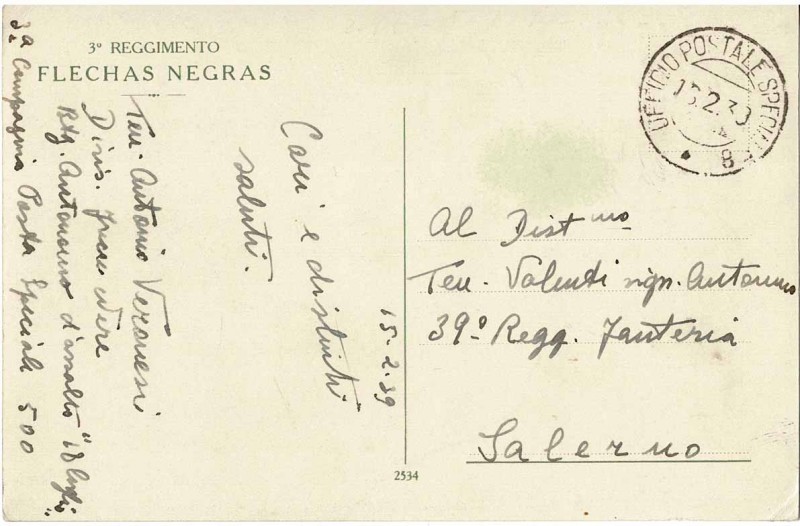 3º REGGIMENTO
FLECHAS NEGRAS
Cari e distinti
saluti.
15-2-39
Ten. Antonio Veronesi
Divis. Frecce Nere
Btg. Autonomo d'assalto "18 luglio"
3ª Compagnia Posta Speciale 500
UFFICIO POSTALE SPECIALE
15.2.39
8
Al Distmo
Ten. Valenti sign. Antonino
39º Regg. Fanteria
Salerno
2534